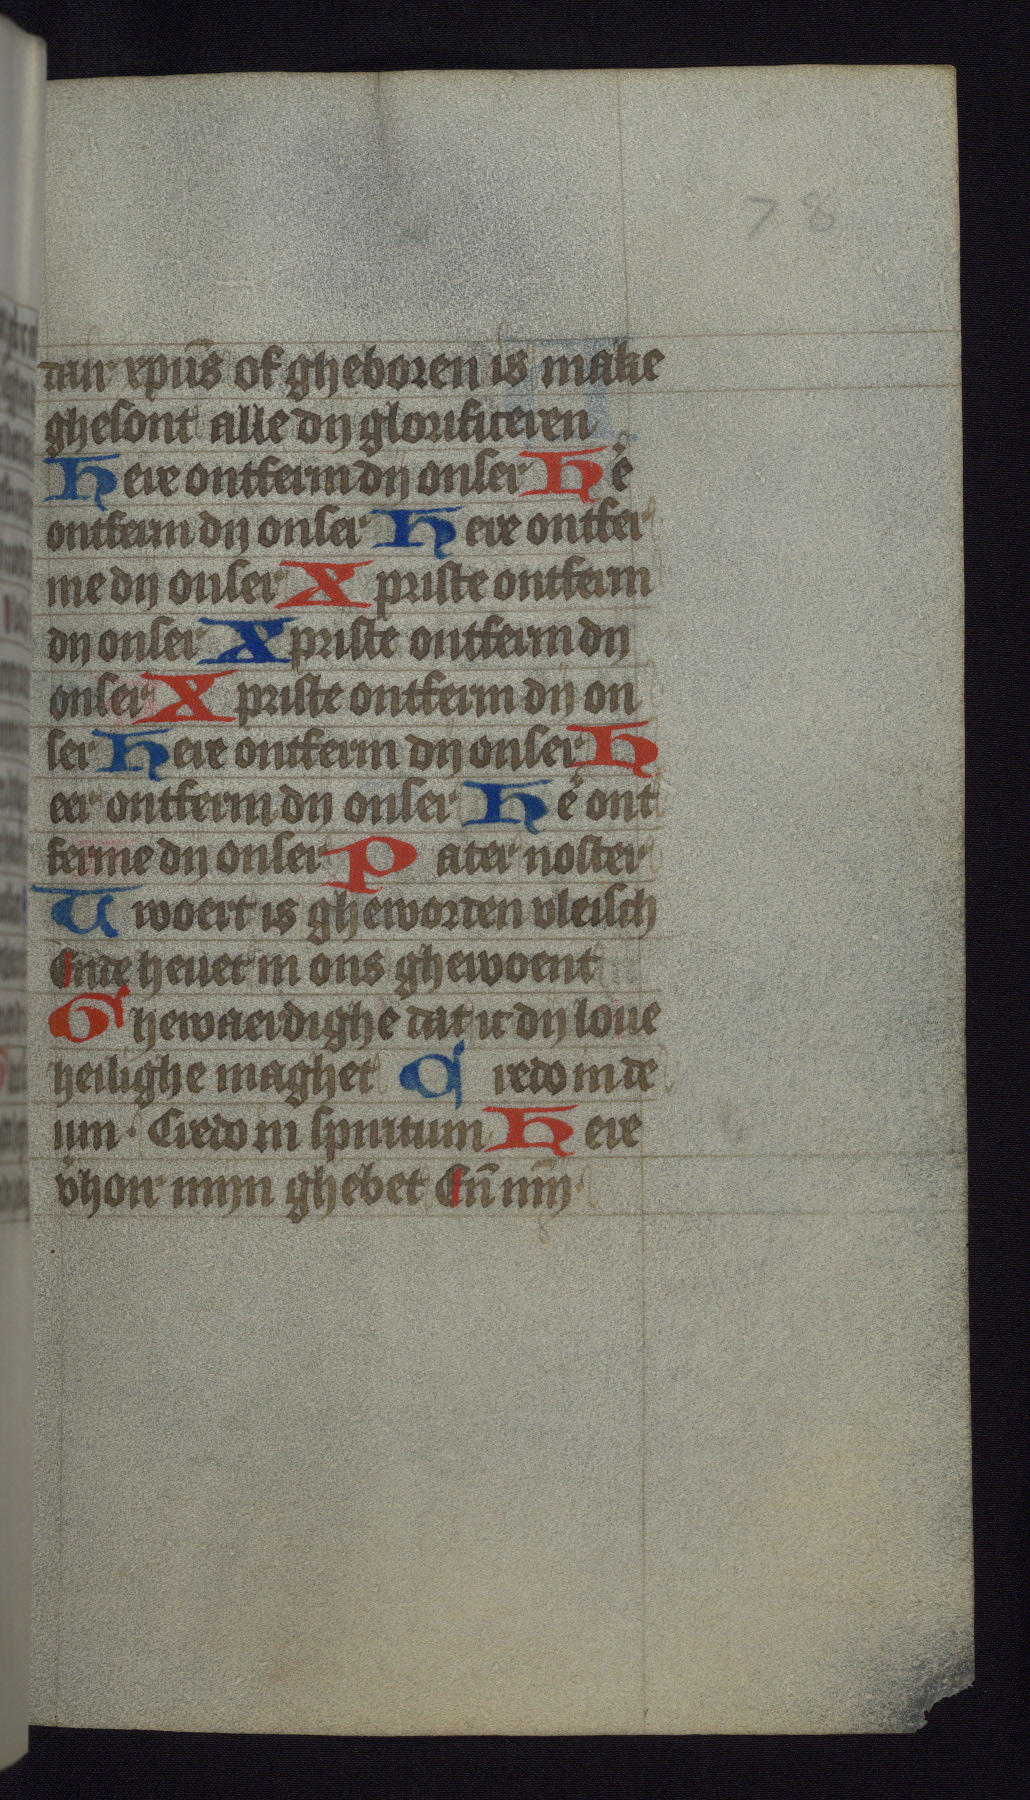 78
dair xpūs of gheboren is make
ghesont alle dij glorificeren
Here ontferm dij onser Hē
ontferm dij onser Here ontfer
me dij onser Xpriste ontferm
dij onser Xpriste ontferm dij
onser Xpriste ontferm dij on
ser Here ontferm dij onser H
eer ontferm dij onser Hē ont
ferme dij onser Pater noster
U woert is gheworden vleisch
Ende heuet in ons ghewoent
Ghewaerdighe dat ic dij loue
heilighe maghet Credo in de
um · Credo in spiritum Here
vhoir mijn ghebet Eñ mijn